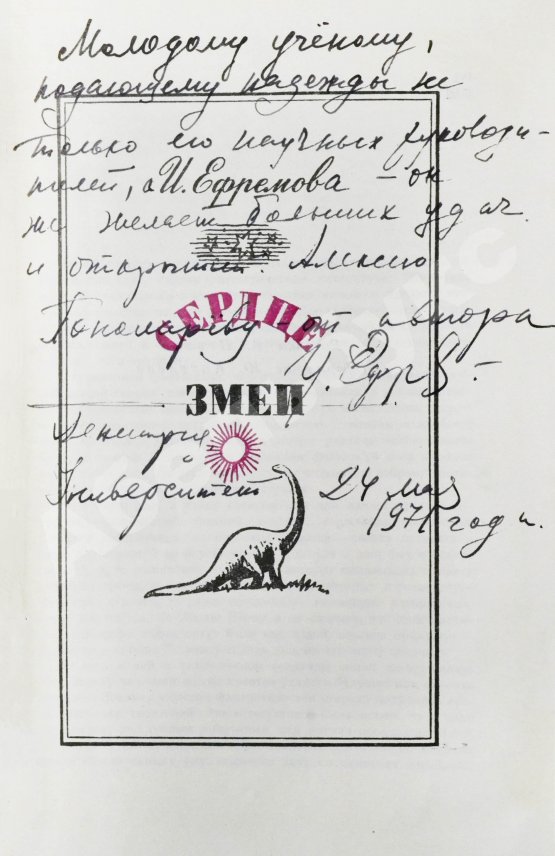 Молодому учёному,
подающему надежды не
только его научных руководи-
телей, а И. Ефремова – он
же желает больших удач
и открытий. Алексею
Пономарёву – от автора
СЕРДЦЕ
И. Ефр
ЗМЕИ
Университет 24 мая
1971 год